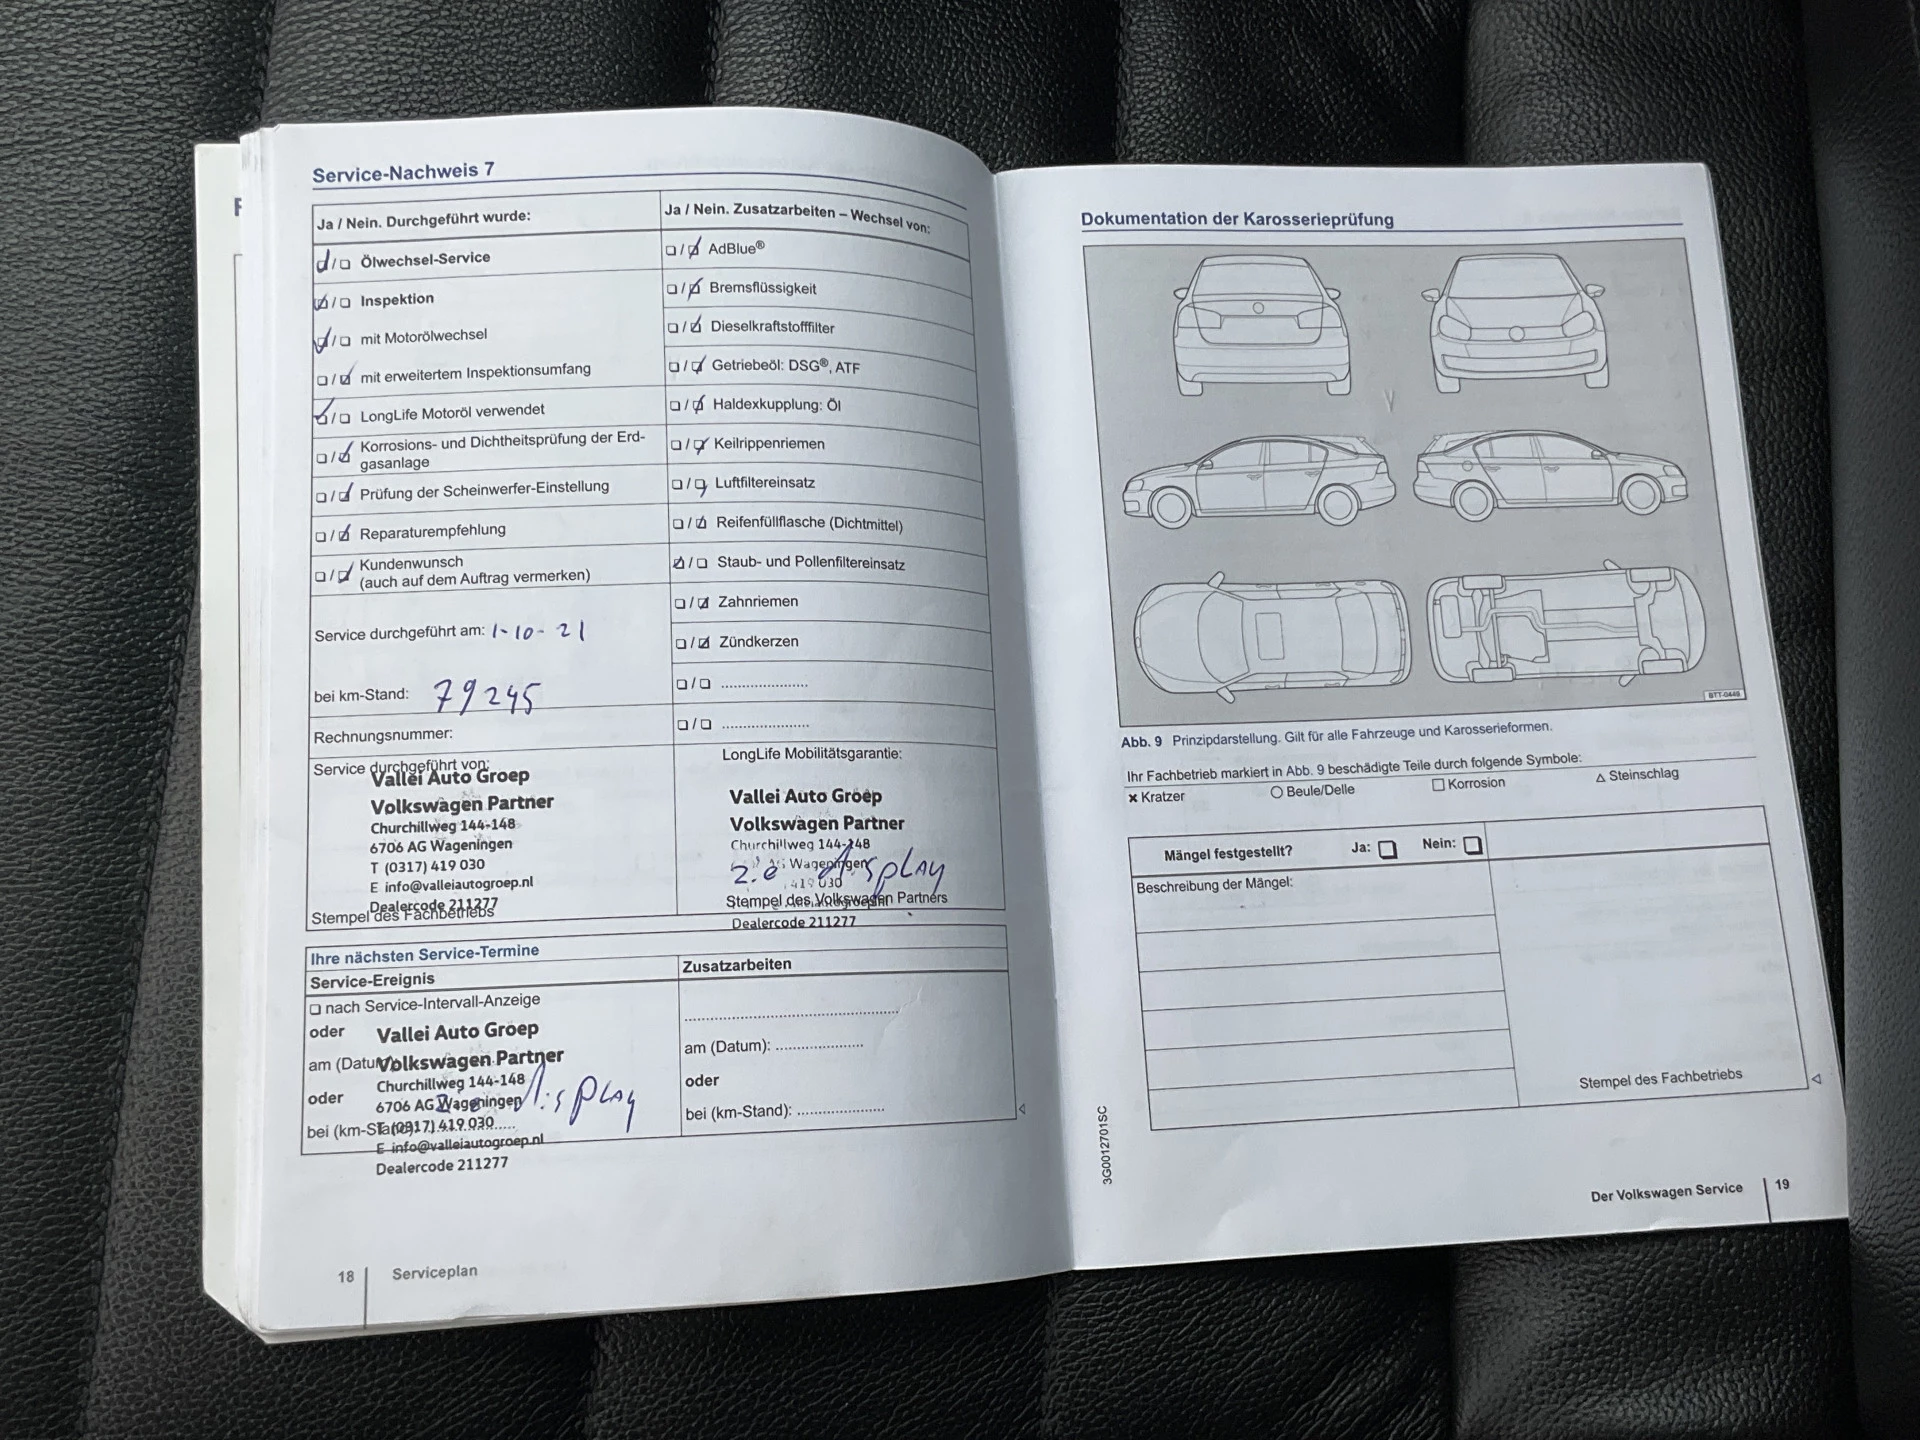 Service-Nachweis 7
Ja / Nein. Durchgeführt wurde:
Ölwechsel-Service
Inspektion
mit Motorölwechsel
mit erweitertem Inspektionsumfang
LongLife Motoröl verwendet
Korrosions- und Dichtheitsprüfung der Erd-
gasanlage
Prüfung der Scheinwerfer-Einstellung
Reparaturempfehlung
Kundenwunsch
(auch auf dem Auftrag vermerken)
Service durchgeführt am: 1-10-21
bei km-Stand: 79245
Rechnungsnummer:
Service durchgeführt von:
Vallei Auto Groep
Volkswagen Partner
Churchillweg 144-148
6706 AG Wageningen
T (0317) 419 030
E info@valleiautogroep.nl
Dealercode 211277
Stempel des Fachbetriebs
Ja / Nein. Zusatzarbeiten – Wechsel von:
AdBlue®
Bremsflüssigkeit
Dieselkraftstofffilter
Getriebeöl: DSG®, ATF
Haldexkupplung: Öl
Keilrippenriemen
Luftfiltereinsatz
Reifenfüllflasche (Dichtmittel)
Staub- und Pollenfiltereinsatz
Zahnriemen
Zündkerzen
LongLife Mobilitätsgarantie:
Vallei Auto Groep
Volkswagen Partner
Churchillweg 144-148
Wageningen
419 030
display
Stempel des Volkswagen Partners
Dealercode 211277
Ihre nächsten Service-Termine
Service-Ereignis
nach Service-Intervall-Anzeige
oder
am (Datum):
oder
bei (km-Stand):
Vallei Auto Groep
Volkswagen Partner
Churchillweg 144-148
6706 AG Wageningen
T (0317) 419 030
E info@valleiautogroep.nl
Dealercode 211277
display
Zusatzarbeiten
am (Datum): ....................
oder
bei (km-Stand): ....................
18 Serviceplan
Dokumentation der Karosserieprüfung
BTT-0449
Abb. 9 Prinzipdarstellung. Gilt für alle Fahrzeuge und Karosserieformen.
Ihr Fachbetrieb markiert in Abb. 9 beschädigte Teile durch folgende Symbole:
Kratzer Beule/Delle Korrosion Steinschlag
Mängel festgestellt? Ja: Nein:
Beschreibung der Mängel:
Stempel des Fachbetriebs
3G0012701SC
Der Volkswagen Service 19